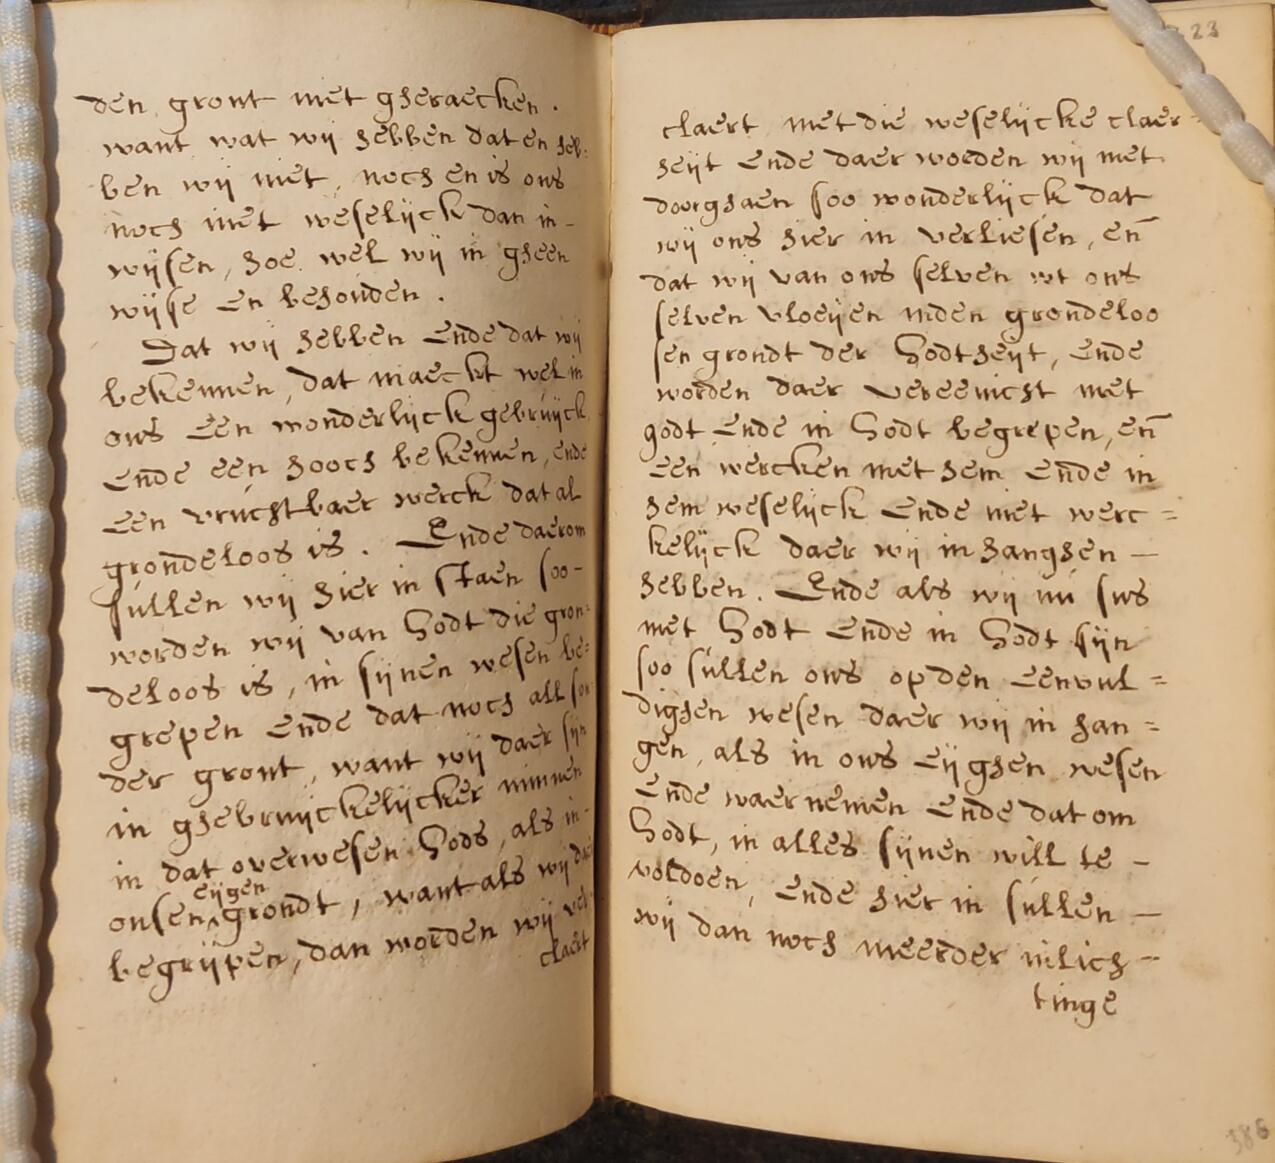 den gront niet gheraecken.
want wat wij hebben dat en heb-
ben wij niet, noch en is ons
noch niet weselijck dan in-
wijsen, hoe wel wij in gheen
wijse en behouden.
Dat wij hebben ende dat wij
bekennen, dat maeckt wel in
ons een wonderlijck gebruijck
ende een hooch bekennen, ende
een vruchtbaer werck dat al
grondeloos is. Ende daerom
sullen wij hier in staen soo-
worden wij van Godt die gron-
deloos is, in sijnen wesen be-
grepen ende dat noch all son
der gront, want wij daer sijn
in ghebruijckelijcker minnen
in dat overwesen Gods, als in-
eijgen
onsen ^ grondt, want als wij dat
begrijpen, dan worden wij ver
claert
23
claert met die weselijcke claer-
heijt ende daer worden wij met
doorghaen soo wonderlijck dat
wij ons hier in verliesen, en̄
dat wij van ons selven wt ons
selven vloeijen inden grondeloo
sen grondt der Godtheijt, ende
worden daer vereenicht met
godt ende in Godt begrepen, en̄
een wercken met hem ende in
hem weselijck ende niet werc=
kelijck daer wij in hanghen —
hebben. Ende als wij nu sus
met Godt ende in Godt sijn
soo sullen ons op den eenvul=
dighen wesen daer wij in han=
gen, als in ons eijghen wesen
ende waernemen ende dat om
Godt, in alles sijnen will te —
voldoen, ende hier in sullen —
wij dan noch meerder inlich—
tinge
386